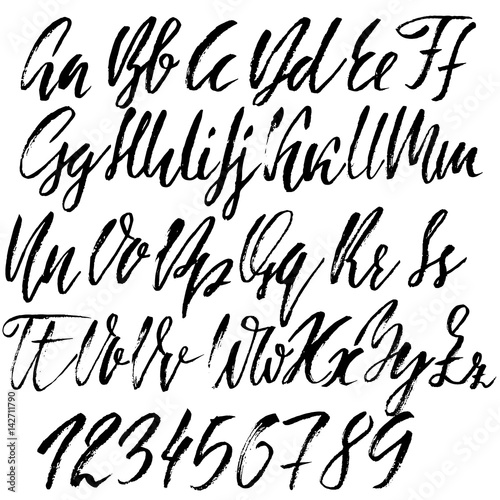 Aa Bb Cc Dd Ee Ff
Gg Hh Ii Jj Kk Ll Mm
Nn Oo Pp Qq Rr Ss
Tt Uu Vv Ww Xx Yy Zz
123456789
Adobe Stock | #142711790